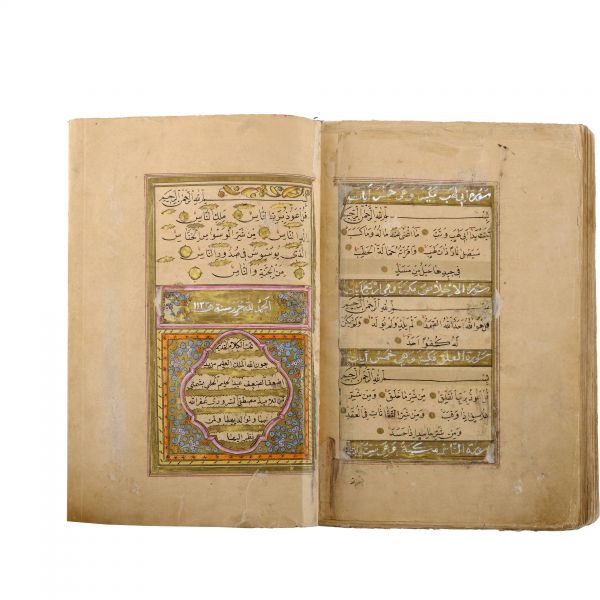 سورة ابي لهب مكية وهي خمس آيات
بسم الله الرحمن الرحيم
تبت يدا ابي لهب وتب ما اغنى عنه ماله وما كسب
سيصلى نارا ذات لهب وامراته حمالة الحطب
في جيدها حبل من مسد
سورة الاخلاص مكية وهي اربع آيات
بسم الله الرحمن الرحيم
قل هو الله احد الله الصمد لم يلد ولم يولد ولم يكن
له كفوا احد
سورة الفلق مكية وهي خمس آيات
بسم الله الرحمن الرحيم
قل اعوذ برب الفلق من شر ما خلق ومن شر
غاسق اذا وقب ومن شر النفاثات في العقد
ومن شر حاسد اذا حسد
سورة الناس مكية وهي ست آيات
بسم الله الرحمن الرحيم
قل اعوذ برب الناس ملك الناس
اله الناس من شر الوسواس الخناس
الذي يوسوس في صدور الناس
من الجنة والناس
الحمد لله حرر سنة
تم الكلام القديم
بعون الله الملك العليم من يد
الضعيف
مصطفى غفر الله
لهما ولوالديهما ولمن
نظر اليهما